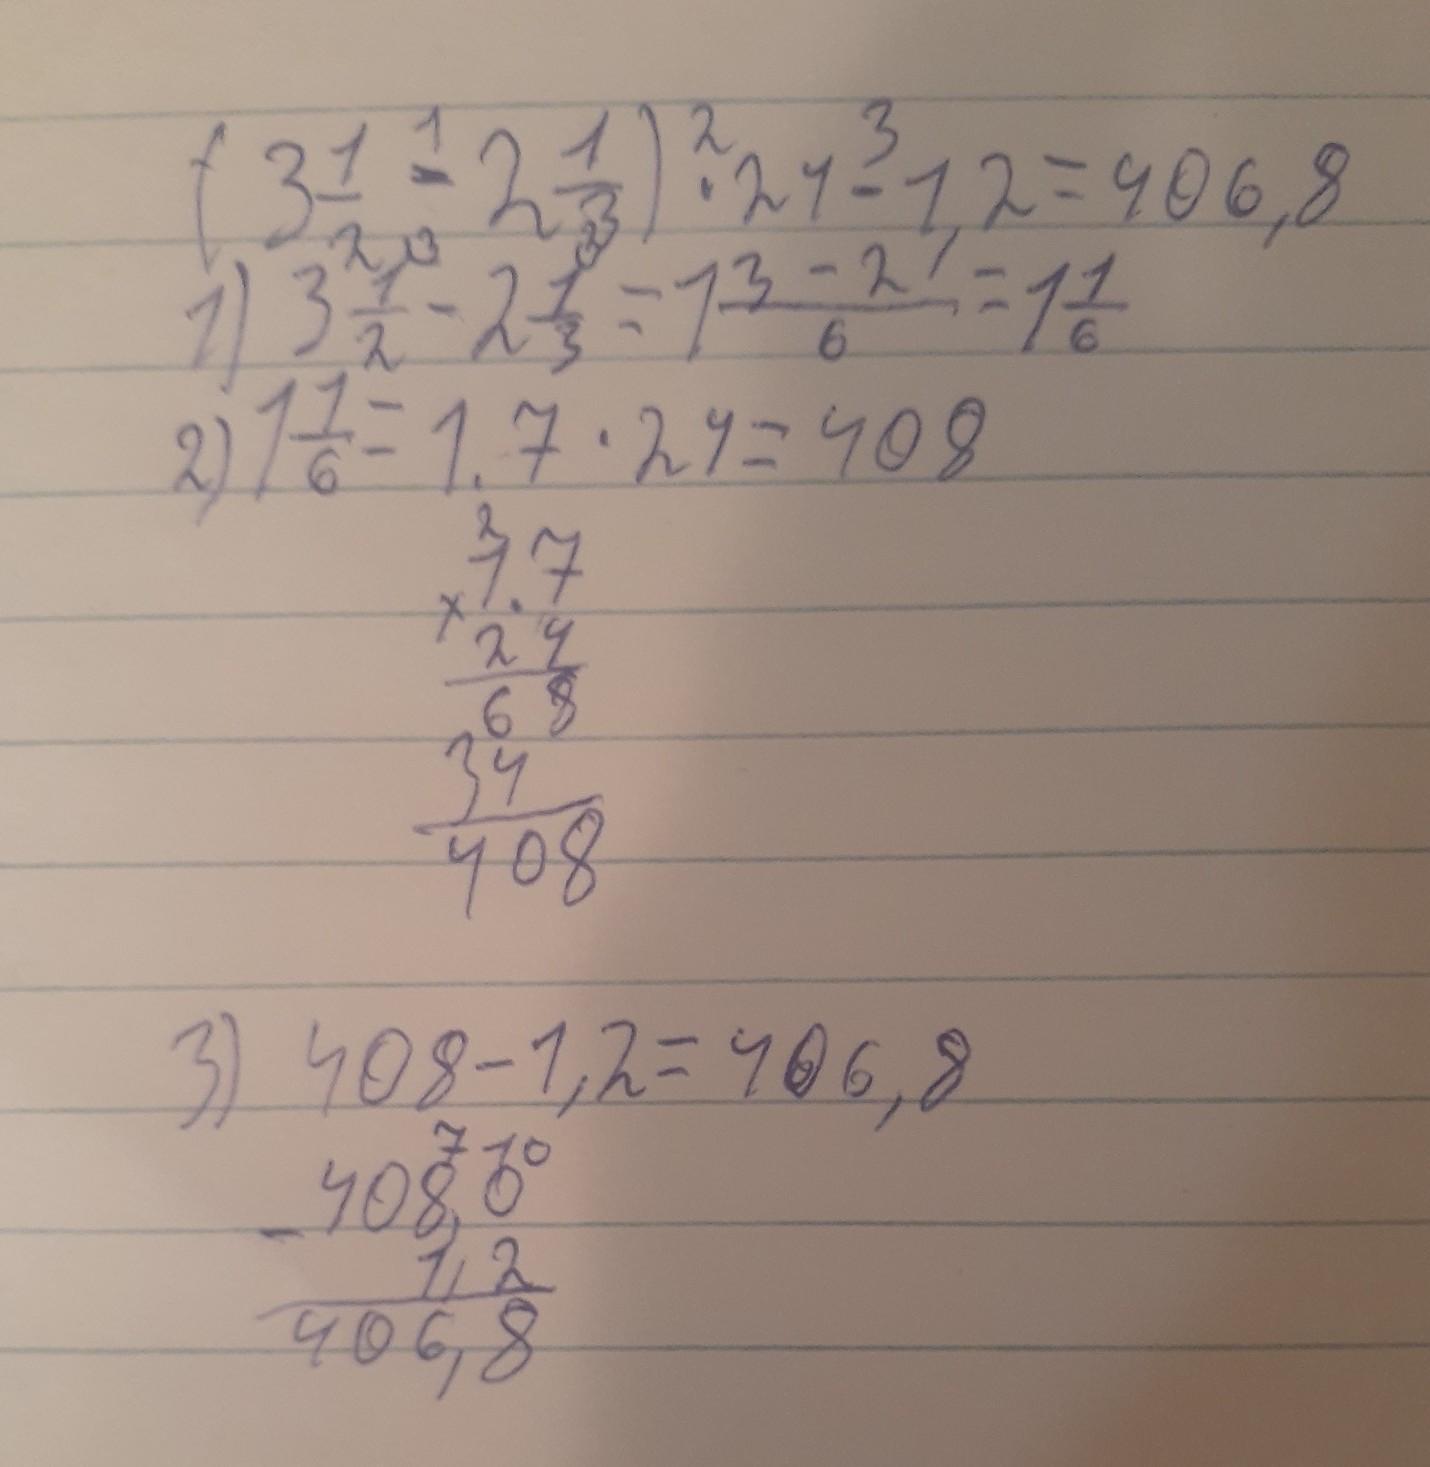 (3 1/2 - 2 1/3) · 24 - 1,2 = 406,8
1) 3 1/2 - 2 1/3 = 1 3-2/6 = 1 1/6
2) 1 1/6 = 1.7 · 24 = 408
2
1.7
× 24
68
34
408
3) 408 - 1,2 = 406,8
7 10
- 408,0
1,2
406,8